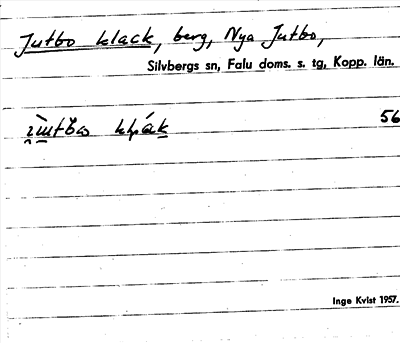 Jutbo klack, berg, Nya Jutbo,
Silvbergs sn, Falu doms. s. tg, Kopp. län.
56
Inge Kvist 1957.